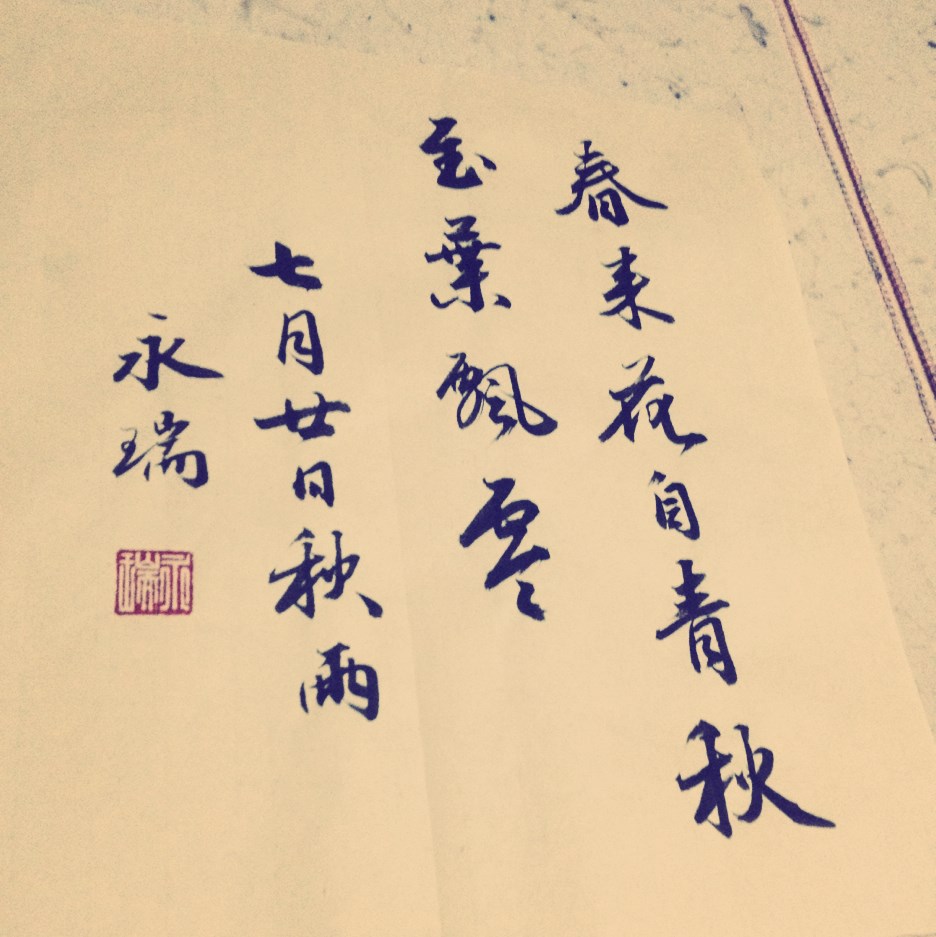 春来花自青秋
至葉飄零
七月廿日秋雨
永瑞
永瑞